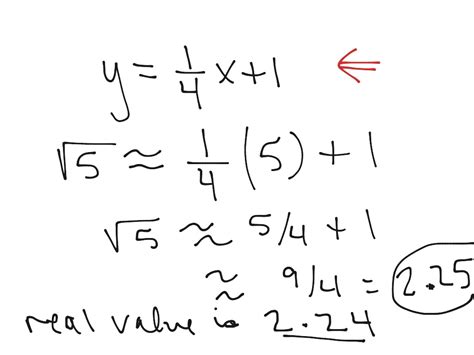 y = 1/4 x + 1
√5 ≈ 1/4 (5) + 1
√5 ≈ 5/4 + 1
≈ 9/4 = 2.25
real value is 2.24